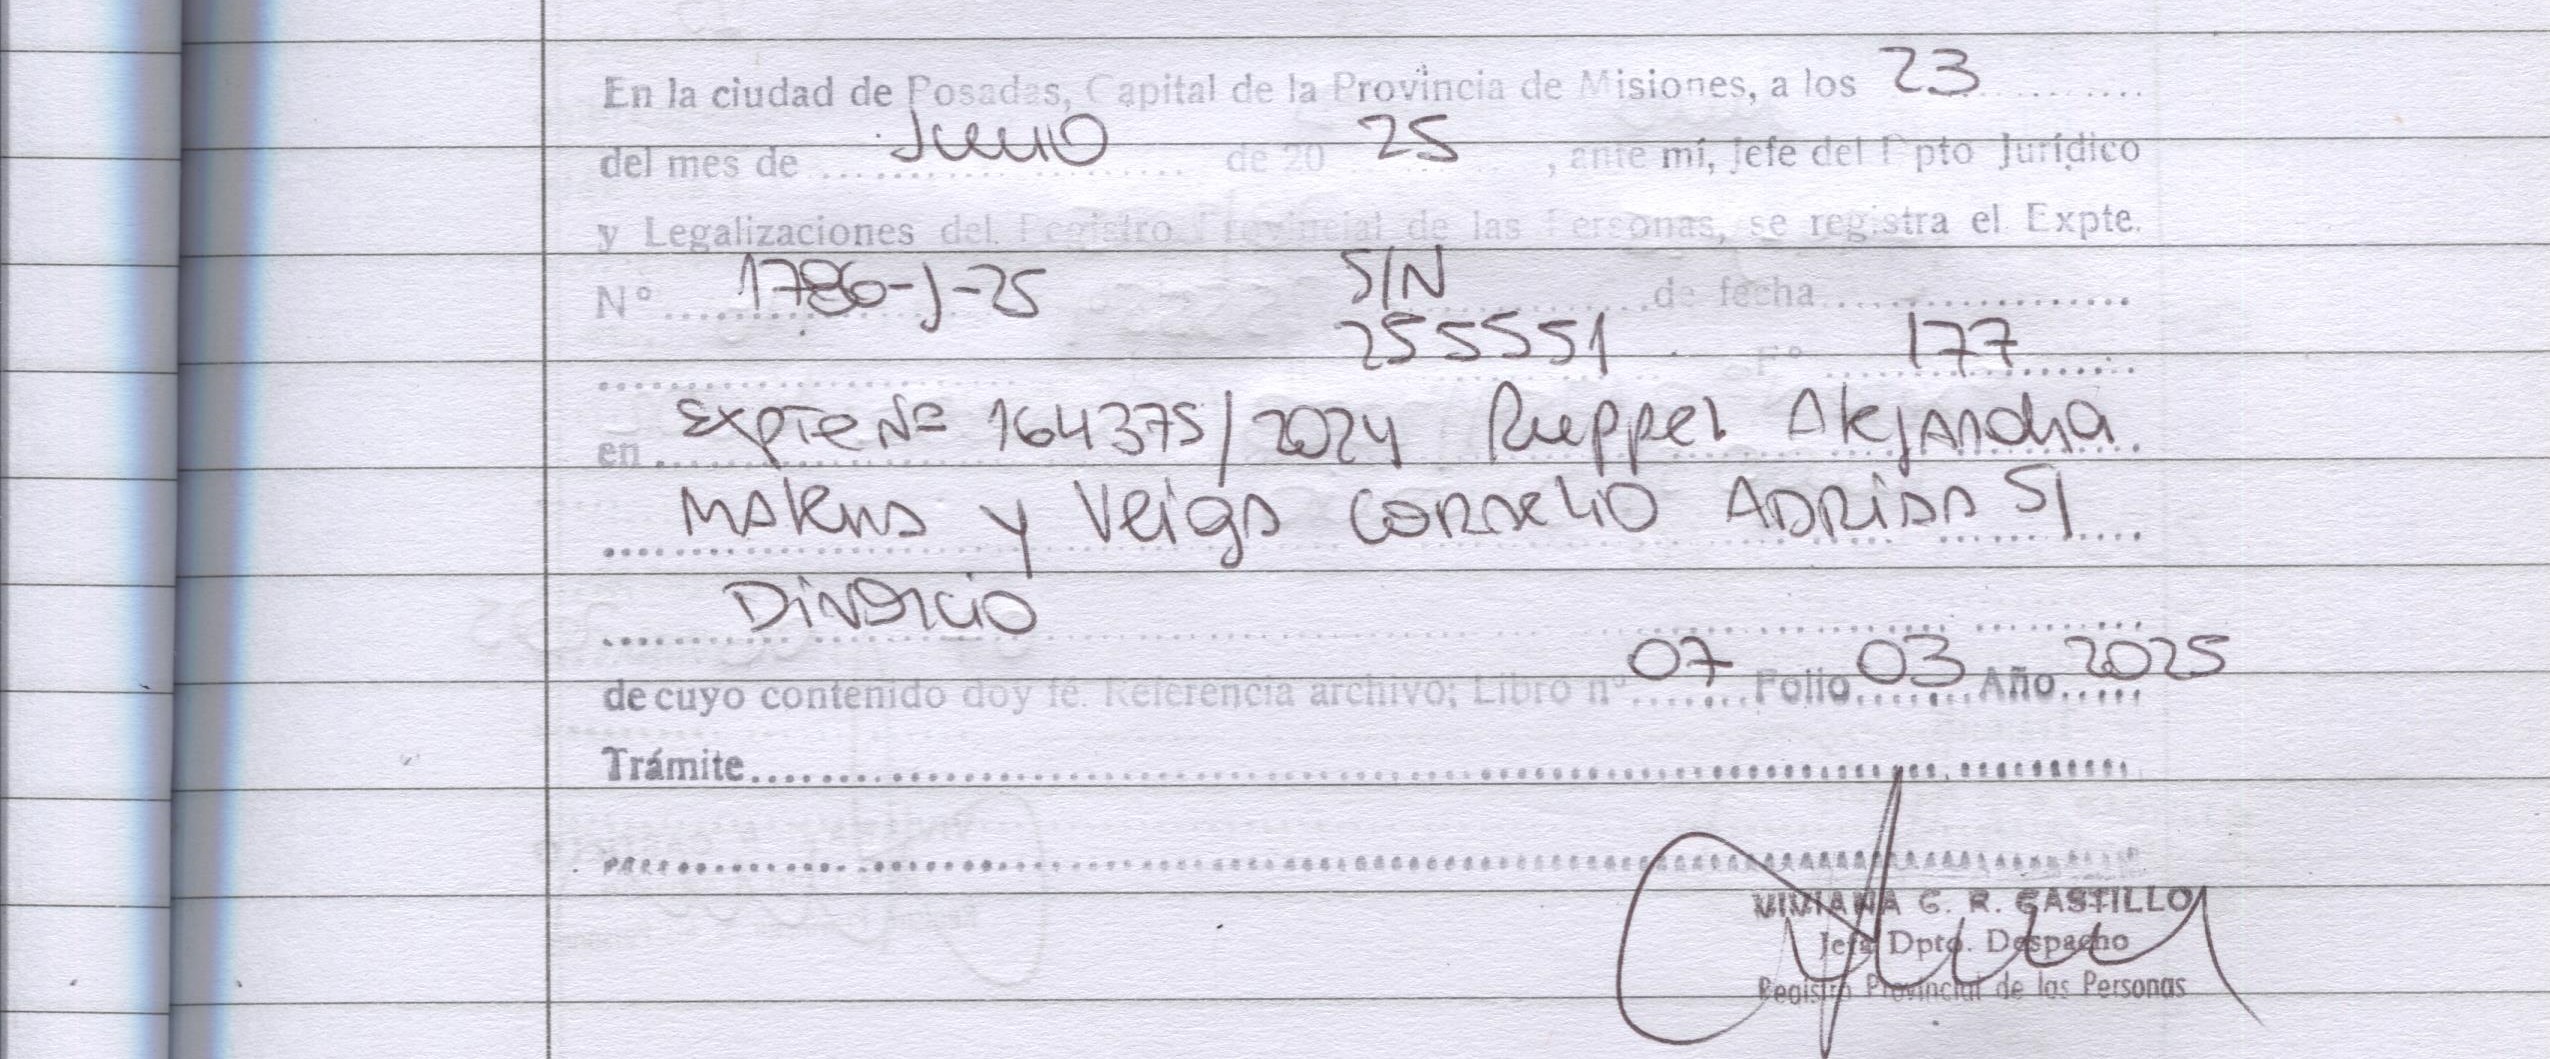 En la ciudad de Posadas, Capital de la Provincia de Misiones, a los 23
del mes de Junio de 20 25, ante mí, Jefe del Dpto Jurídico
y Legalizaciones del Registro Provincial de las Personas, se registra el Expte.
Nº 1786-J-25 S/N de fecha
255551 Fº 177
en Expte Nº 164375/2024 Rueppel Alejandra
Malena y Veiga Cornelio Adrian S/
Divorcio
de cuyo contenido doy fé. Referencia archivo; Libro nº 07 Folio 03 Año 2025
Trámite
VIVIANA C. R. CASTILLO
Jefa Dpto. Despacho
Registro Provincial de las Personas